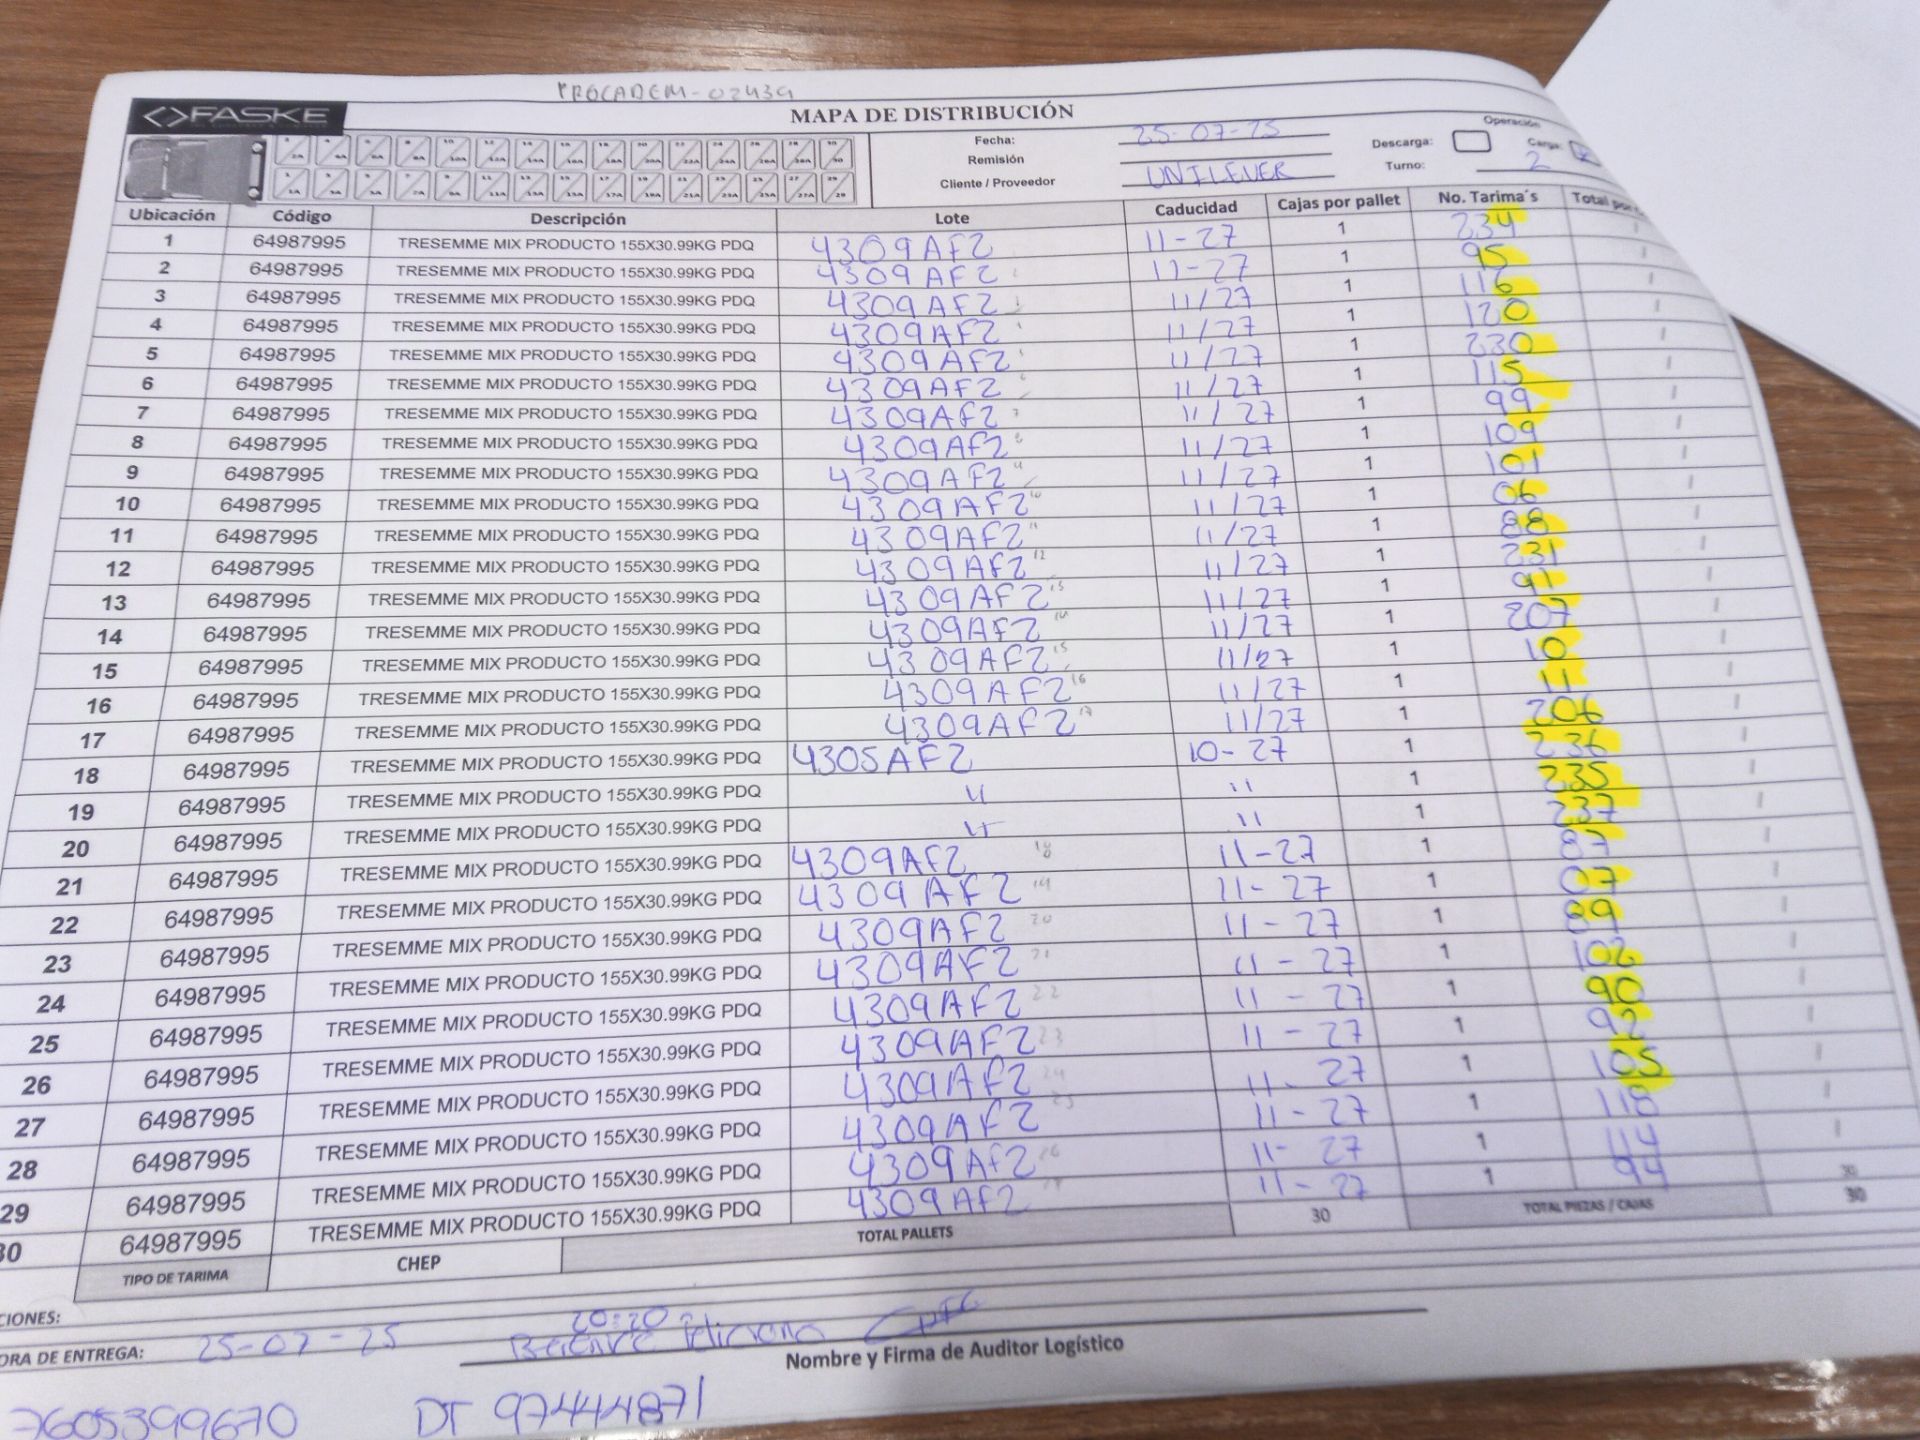 PROCADEM-02439
FASKE
MAPA DE DISTRIBUCIÓN
Operación
Fecha: 25-07-25 Descarga: Carga:
Remisión Turno: 2
Cliente / Proveedor UNILEVER
Ubicación Código Descripción Lote Caducidad Cajas por pallet No. Tarima´s Total por
1 64987995 TRESEMME MIX PRODUCTO 155X30.99KG PDQ 4309AF2 11-27 1 234 1
2 64987995 TRESEMME MIX PRODUCTO 155X30.99KG PDQ 4309AF2 11-27 1 95 1
3 64987995 TRESEMME MIX PRODUCTO 155X30.99KG PDQ 4309AF2 11/27 1 116 1
4 64987995 TRESEMME MIX PRODUCTO 155X30.99KG PDQ 4309AF2 11/27 1 120 1
5 64987995 TRESEMME MIX PRODUCTO 155X30.99KG PDQ 4309AF2 11/27 1 230 1
6 64987995 TRESEMME MIX PRODUCTO 155X30.99KG PDQ 4309AF2 11/27 1 115 1
7 64987995 TRESEMME MIX PRODUCTO 155X30.99KG PDQ 4309AF2 7 11/27 1 99 1
8 64987995 TRESEMME MIX PRODUCTO 155X30.99KG PDQ 4309AF2 8 11/27 1 109 1
9 64987995 TRESEMME MIX PRODUCTO 155X30.99KG PDQ 4309AF2 11/27 1 101 1
10 64987995 TRESEMME MIX PRODUCTO 155X30.99KG PDQ 4309AF2 10 11/27 1 06 1
11 64987995 TRESEMME MIX PRODUCTO 155X30.99KG PDQ 4309AF2 11 11/27 1 88 1
12 64987995 TRESEMME MIX PRODUCTO 155X30.99KG PDQ 4309AF2 12 11/27 1 231 1
13 64987995 TRESEMME MIX PRODUCTO 155X30.99KG PDQ 4309AF2 13 11/27 1 91 1
14 64987995 TRESEMME MIX PRODUCTO 155X30.99KG PDQ 4309AF2 14 11/27 1 207 1
15 64987995 TRESEMME MIX PRODUCTO 155X30.99KG PDQ 4309AF2 15 11/27 1 10 1
16 64987995 TRESEMME MIX PRODUCTO 155X30.99KG PDQ 4309AF2 16 11/27 1 11 1
17 64987995 TRESEMME MIX PRODUCTO 155X30.99KG PDQ 4309AF2 17 11/27 1 206 1
18 64987995 TRESEMME MIX PRODUCTO 155X30.99KG PDQ 4305AF2 10-27 1 236 1
19 64987995 TRESEMME MIX PRODUCTO 155X30.99KG PDQ 11 11 1 235 1
20 64987995 TRESEMME MIX PRODUCTO 155X30.99KG PDQ 11 11 1 237 1
21 64987995 TRESEMME MIX PRODUCTO 155X30.99KG PDQ 4309AF2 18 11-27 1 87 1
22 64987995 TRESEMME MIX PRODUCTO 155X30.99KG PDQ 4309AF2 19 11-27 1 07 1
23 64987995 TRESEMME MIX PRODUCTO 155X30.99KG PDQ 4309AF2 20 11-27 1 89 1
24 64987995 TRESEMME MIX PRODUCTO 155X30.99KG PDQ 4309AF2 21 11-27 1 102 1
25 64987995 TRESEMME MIX PRODUCTO 155X30.99KG PDQ 4309AF2 22 11-27 1 90 1
26 64987995 TRESEMME MIX PRODUCTO 155X30.99KG PDQ 4309AF2 23 11-27 1 92 1
27 64987995 TRESEMME MIX PRODUCTO 155X30.99KG PDQ 4309AF2 24 11-27 1 105 1
28 64987995 TRESEMME MIX PRODUCTO 155X30.99KG PDQ 4309AF2 25 11-27 1 118 1
29 64987995 TRESEMME MIX PRODUCTO 155X30.99KG PDQ 4309AF2 26 11-27 1 114 1
30 64987995 TRESEMME MIX PRODUCTO 155X30.99KG PDQ 4309AF2 11-27 1 94 30
TIPO DE TARIMA CHEP TOTAL PALLETS 30 TOTAL PIEZAS / CAJAS 30
CIONES:
20:20
ORA DE ENTREGA: 25-07-25
Nombre y Firma de Auditor Logístico
7605399670 DT 97444871